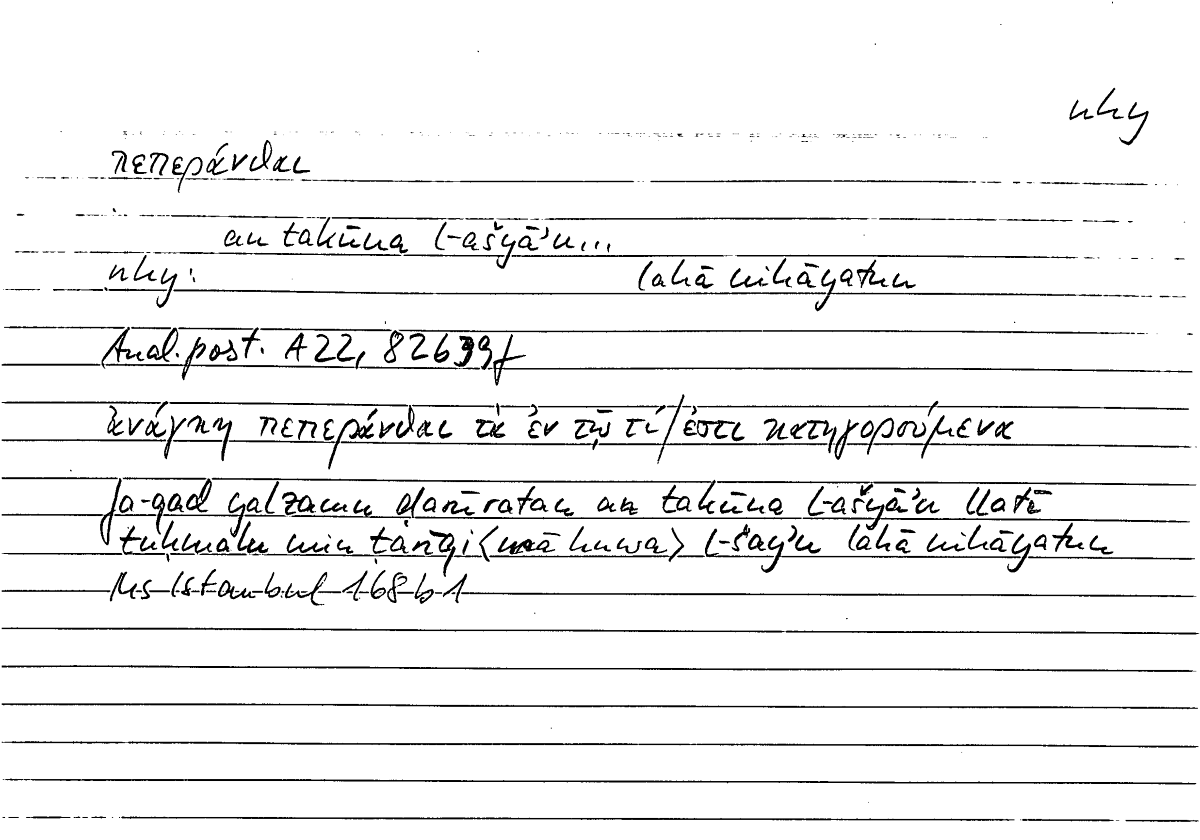 nhy
πεπεράνθαι
an takūna l-ašyāʾu...
nhy: lahā nihāyatun
Anal. post. A 22, 82b39f
ἀνάγκη πεπεράνθαι τὰ ἐν τῷ τί ἐστι κατηγορούμενα
fa-qad yalzamu ḍarūratan an takūna l-ašyāʾu llatī
tuḥmalu min ṭarīqi <mā huwa> l-šayʾu lahā nihāyatun
Ms Istanbul 168 b 1